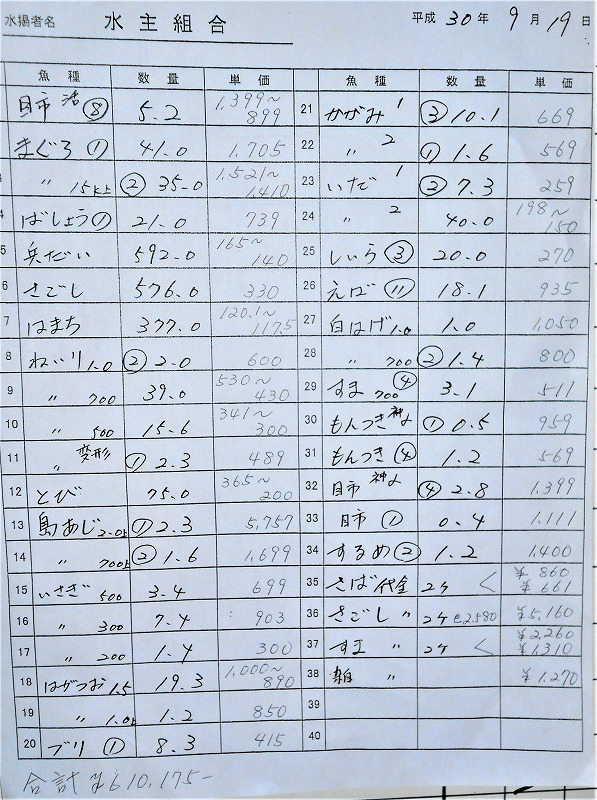 水揚者名 水主組合 平成30年9月19日
魚種 数量 単価
目市 活⑧ 5.2 1,399~899
まぐろ① 41.0 1,705
〃 15K上 ② 35.0 1,521~1,410
4 ばしょう① 21.0 739
5 兵だい 592.0 165~140
6 さごし 576.0 330
7 はまち 377.0 120.1~117.5
8 ねいり 1.0 ② 2.0 600
9 〃 700 39.0 530~430
10 〃 500 15.6 341~300
11 〃 変形 ① 2.3 489
12 とび 75.0 365~200
13 島あじ 2.0上 ① 2.3 5,757
14 〃 700上 ② 1.6 1,699
15 いさぎ 500 3.4 699
16 〃 300 7.4 903
17 〃 200 1.4 300
18 はがつお 1.5 19.3 1,000~890
19 〃 1.0上 1.2 850
20 ブリ ① 8.3 415
魚種 数量 単価
21 かがみ 1 ③ 10.1 669
22 〃 2 ① 1.6 569
23 いだ 1 ② 7.3 259
24 〃 2 40.0 198~150
25 しいら ③ 20.0 270
26 えば ⑪ 18.1 935
27 白はげ 1.0 1.0 1,050
28 〃 700 ② 1.4 800
29 すま 700 ④ 3.1 511
30 もんつき 神〆 ① 0.5 959
31 もんつき ④ 1.2 569
32 目市 神〆 ④ 2.8 1,399
33 目市 ① 0.4 1,111
34 するめ ② 1.2 1,400
35 さば 代金 2ケ < ¥860 ¥661
36 さごし 〃 2ケ @2,580 ¥5,160
37 〃 2ケ < ¥2,260 ¥1,310
38 雑 〃 ¥1,270
39
40
合計 ¥610,175-